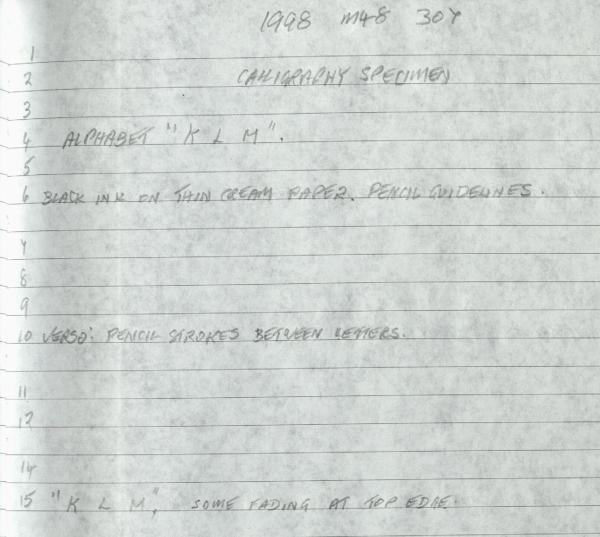 1998 M48 30Y
1
2 CALLIGRAPHY SPECIMEN
3
4 ALPHABET "K L M".
5
6 BLACK INK ON THIN CREAM PAPER. PENCIL GUIDELINES.
7
8
9
10 VERSO: PENCIL STROKES BETWEEN LETTERS.
11
12
14
15 "K L M", SOME FADING AT TOP EDGE.